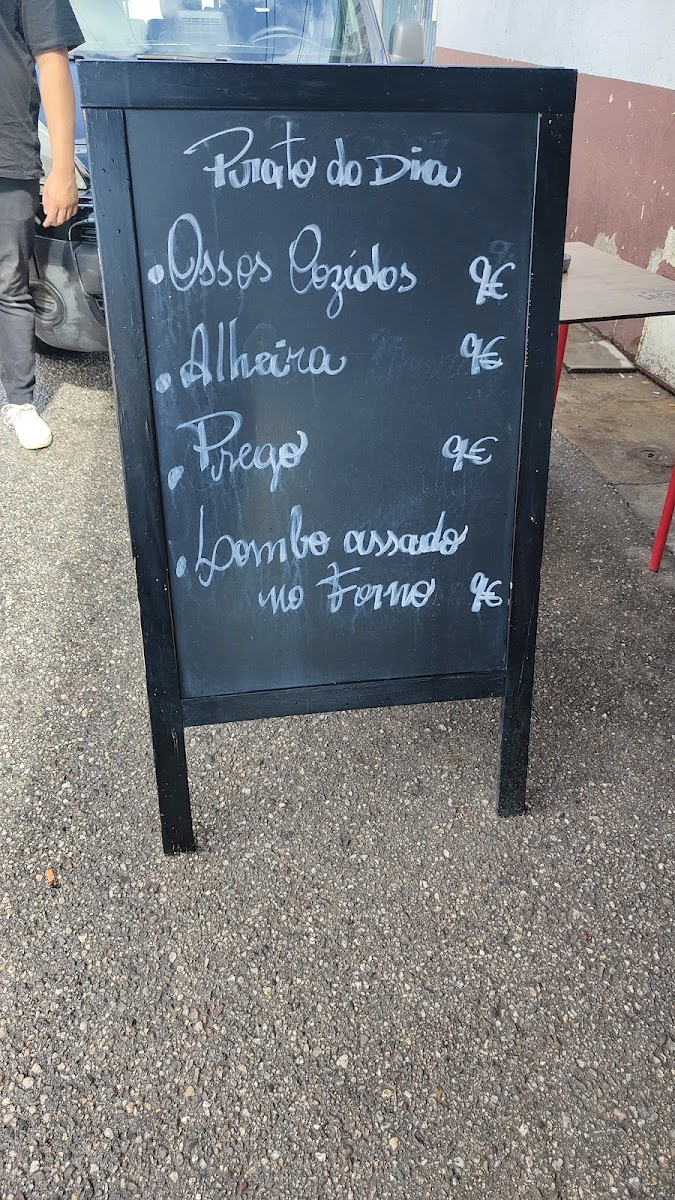 Prato do Dia
• Ossos Cozidos 9€
• Alheira 9€
• Prego 9€
• Lombo assado
no Forno 9€